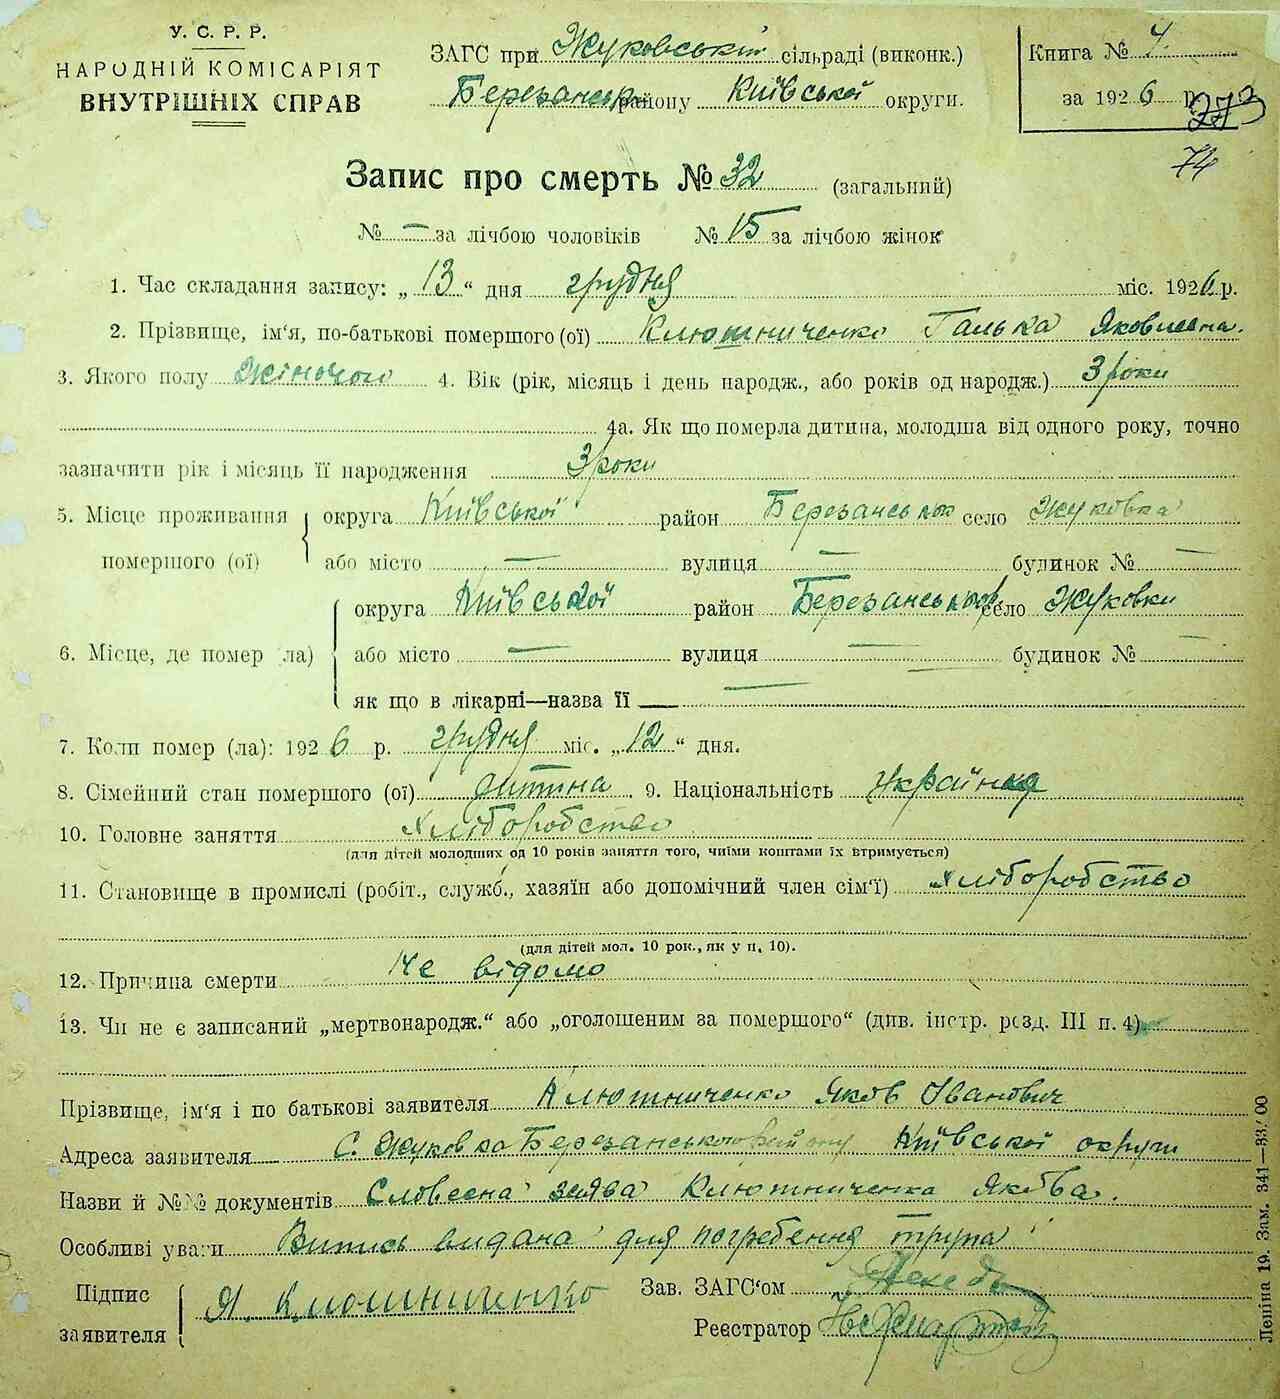 У. С. Р. Р.
НАРОДНІЙ КОМІСАРІЯТ
ВНУТРІШНІХ СПРАВ
ЗАГС при Жуковській сільраді (виконк.)
Березанськ району Київської округи.
Книга № 4
за 1926 р.
273
74
Запис про смерть № 32 (загальний)
№ — за лічбою чоловіків № 15 за лічбою жінок
1. Час складання запису: „13“ дня грудня міс. 1926 р.
2. Прізвище, ім'я, по-батькові помершого (ої) Клюшниченко Галька Яковлевна.
3. Якого полу жіночого 4. Вік (рік, місяць і день народж., або років од народж.) 3 роки
4а. Як що померла дитина, молодша від одного року, точно
зазначити рік і місяць її народження 3 роки
5. Місце проживання помершого (ої) округа Київської район Березанськ село Жуковка
або місто — вулиця — будинок № —
6. Місце, де помер (ла) округа Київської район Березанськ село Жуковки
або місто — вулиця — будинок № —
як що в лікарні—назва її —
7. Коли помер (ла): 1926 р. грудня міс. „12“ дня.
8. Сімейний стан помершого (ої) дитина. 9. Національність
10. Головне заняття хліборобство
(для дітей молодших од 10 років заняття того, чиїми коштами їх втримується)
11. Становище в промислі (робіт., служб., хазяїн або допомічний член сім'ї) хліборобство
(для дітей мол. 10 рок., як у п. 10).
12. Причина смерти Не відомо
13. Чи не є записаний „мертвонародж.“ або „оголошеним за помершого“ (див. інстр. розд. III п. 4)
Прізвище, ім'я і по батькові заявителя Клюшниченко Яков Іванович
Адреса заявителя С. Жуковка Березанського району Київської округи
Назви й №№ документів Словесна заява Клюшниченка Якова.
Особливі уваги Випись видана для погребення трупа
Підпис заявителя Я. Клюшниченко
Зав. ЗАГС'ом
Реєстратор
Леніна 19. Зам. 341—33/00